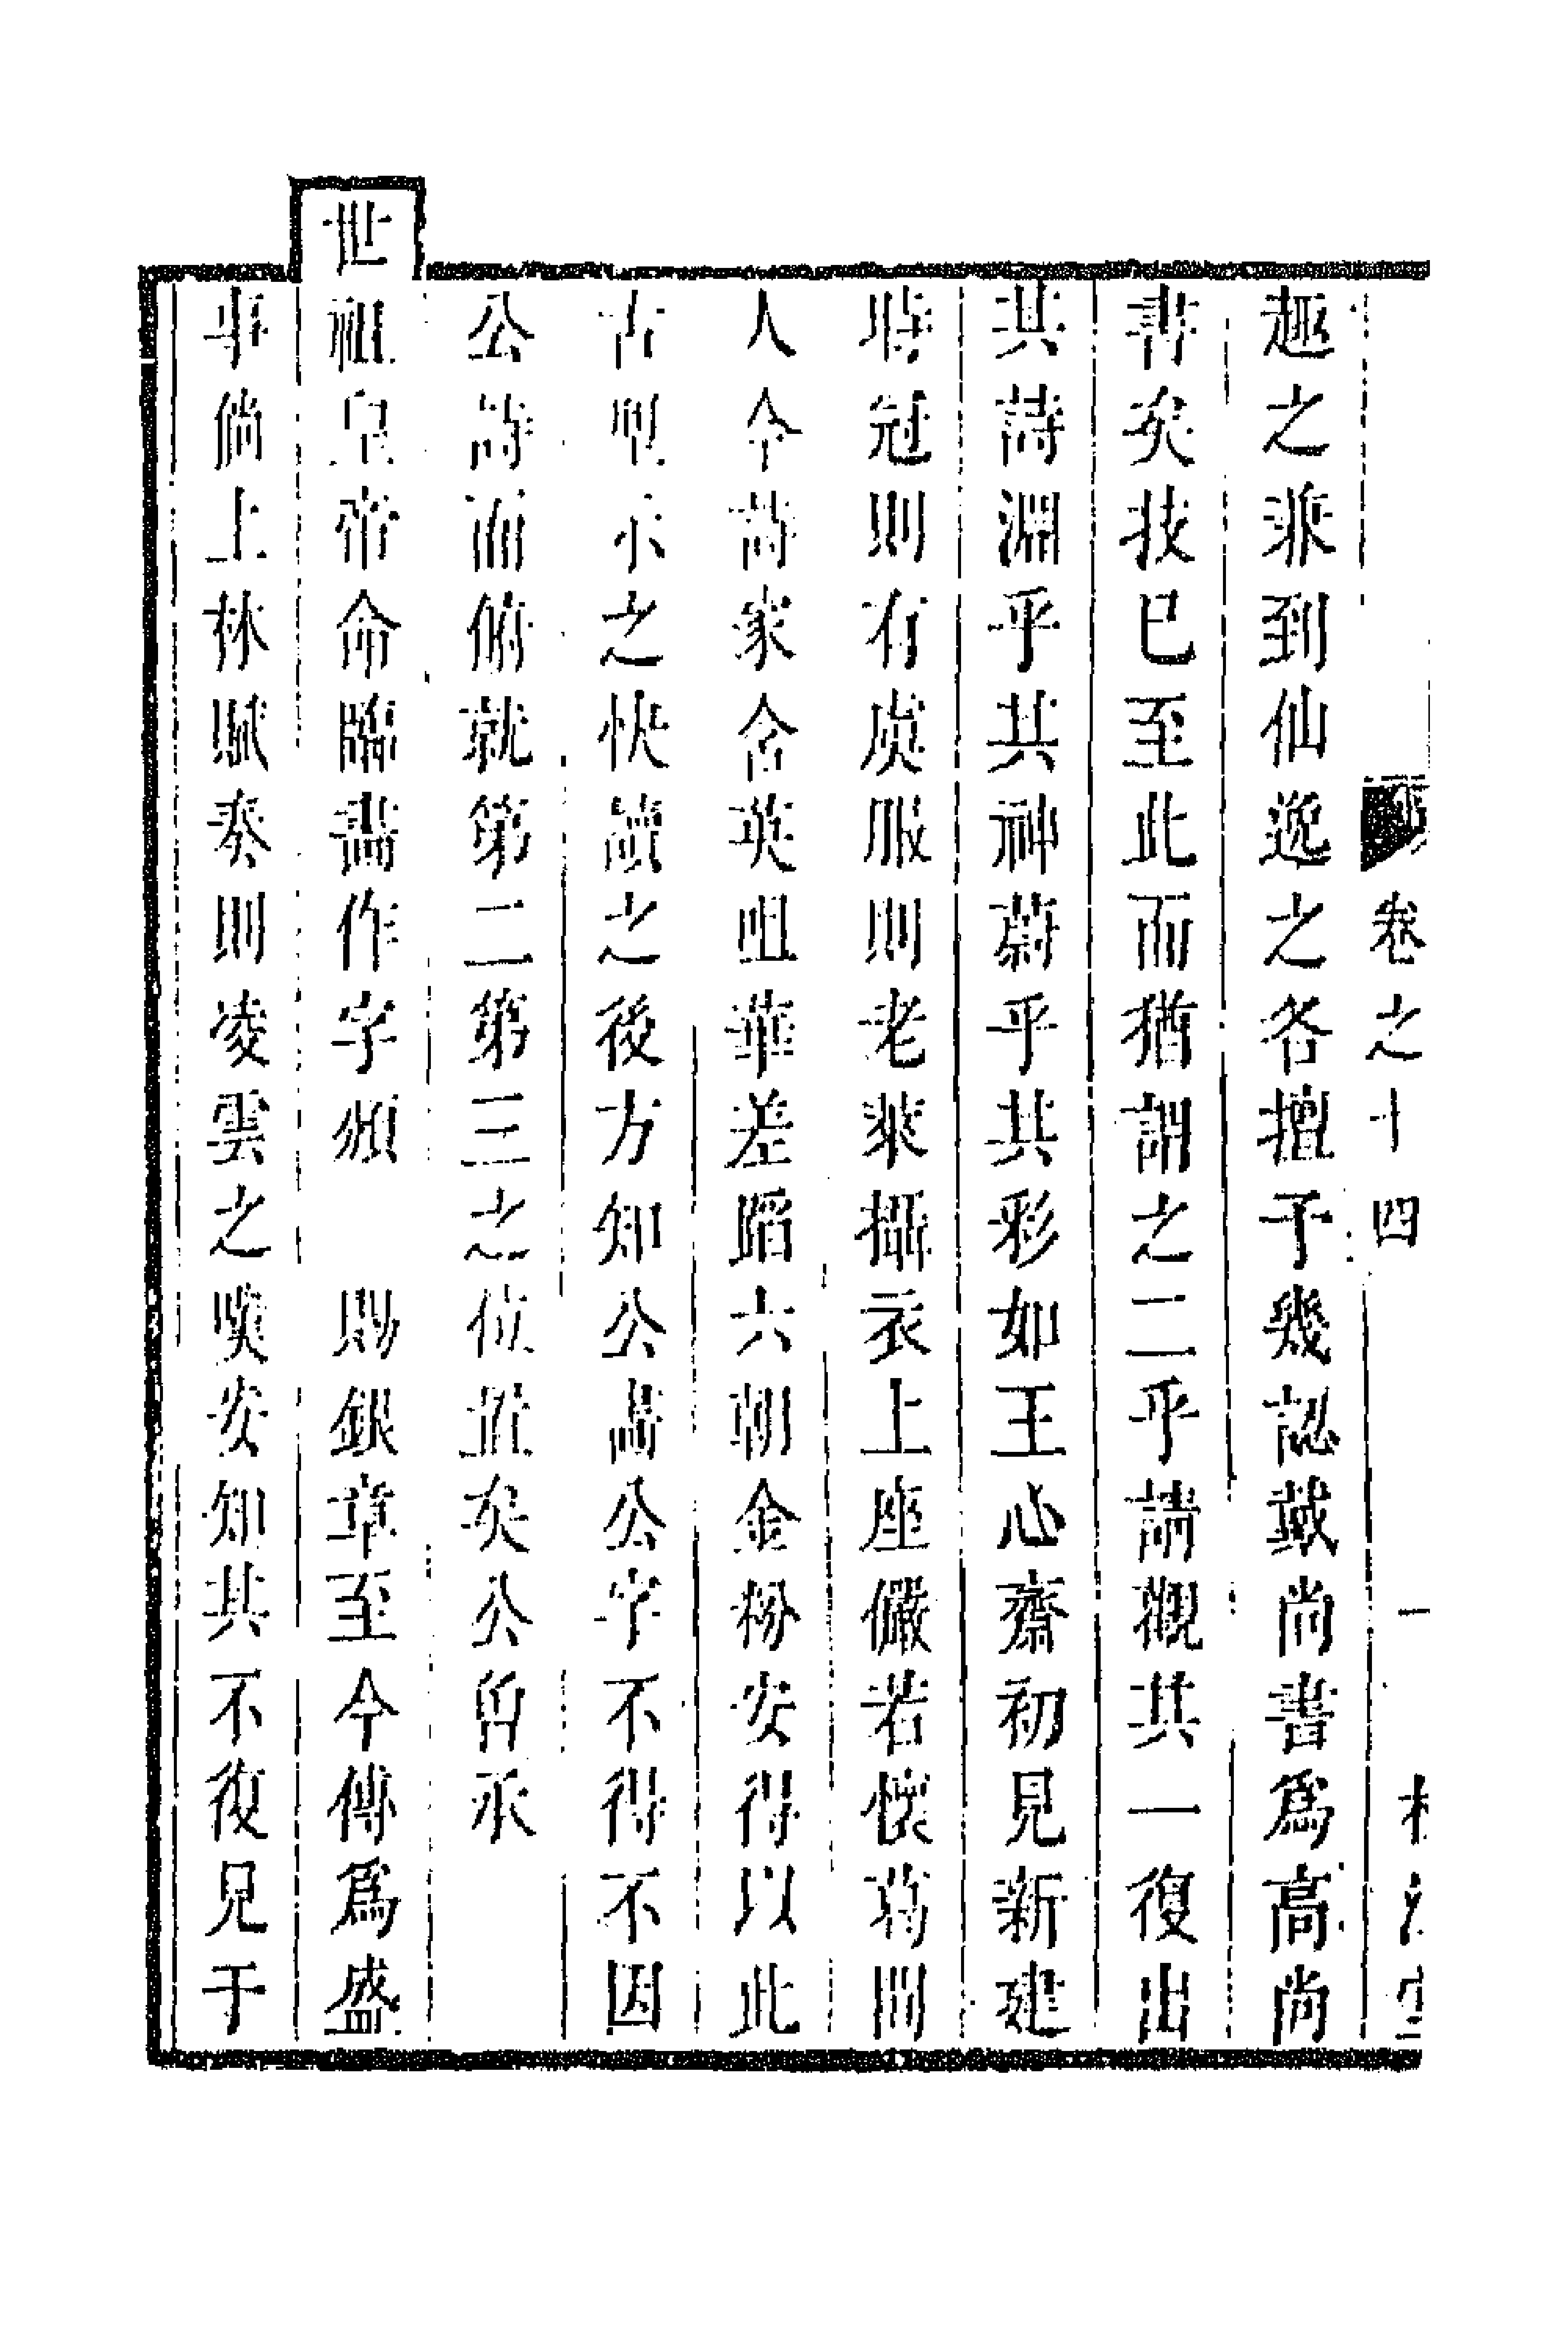 卷之十四
趣之兼到仙逸之各擅予幾認戴尚書爲高尚
書矣技已至此而猶謂之二乎請觀其一復出
其詩淵乎其神蔚乎其彩如王心齋初見新建
時冠則有虞服則老萊攝衣上座儼若懷葛間
人今詩家含英咀華差蹈六朝金粉安得以此
古型示之快讀之後方知公畵公字不得不因
公詩而俯就第二第三之位置矣公曾承
世祖皇帝命臨畵作字頻 賜銀章至今傳爲盛
事倘上林賦奏則凌雲之嘆安知其不復見于